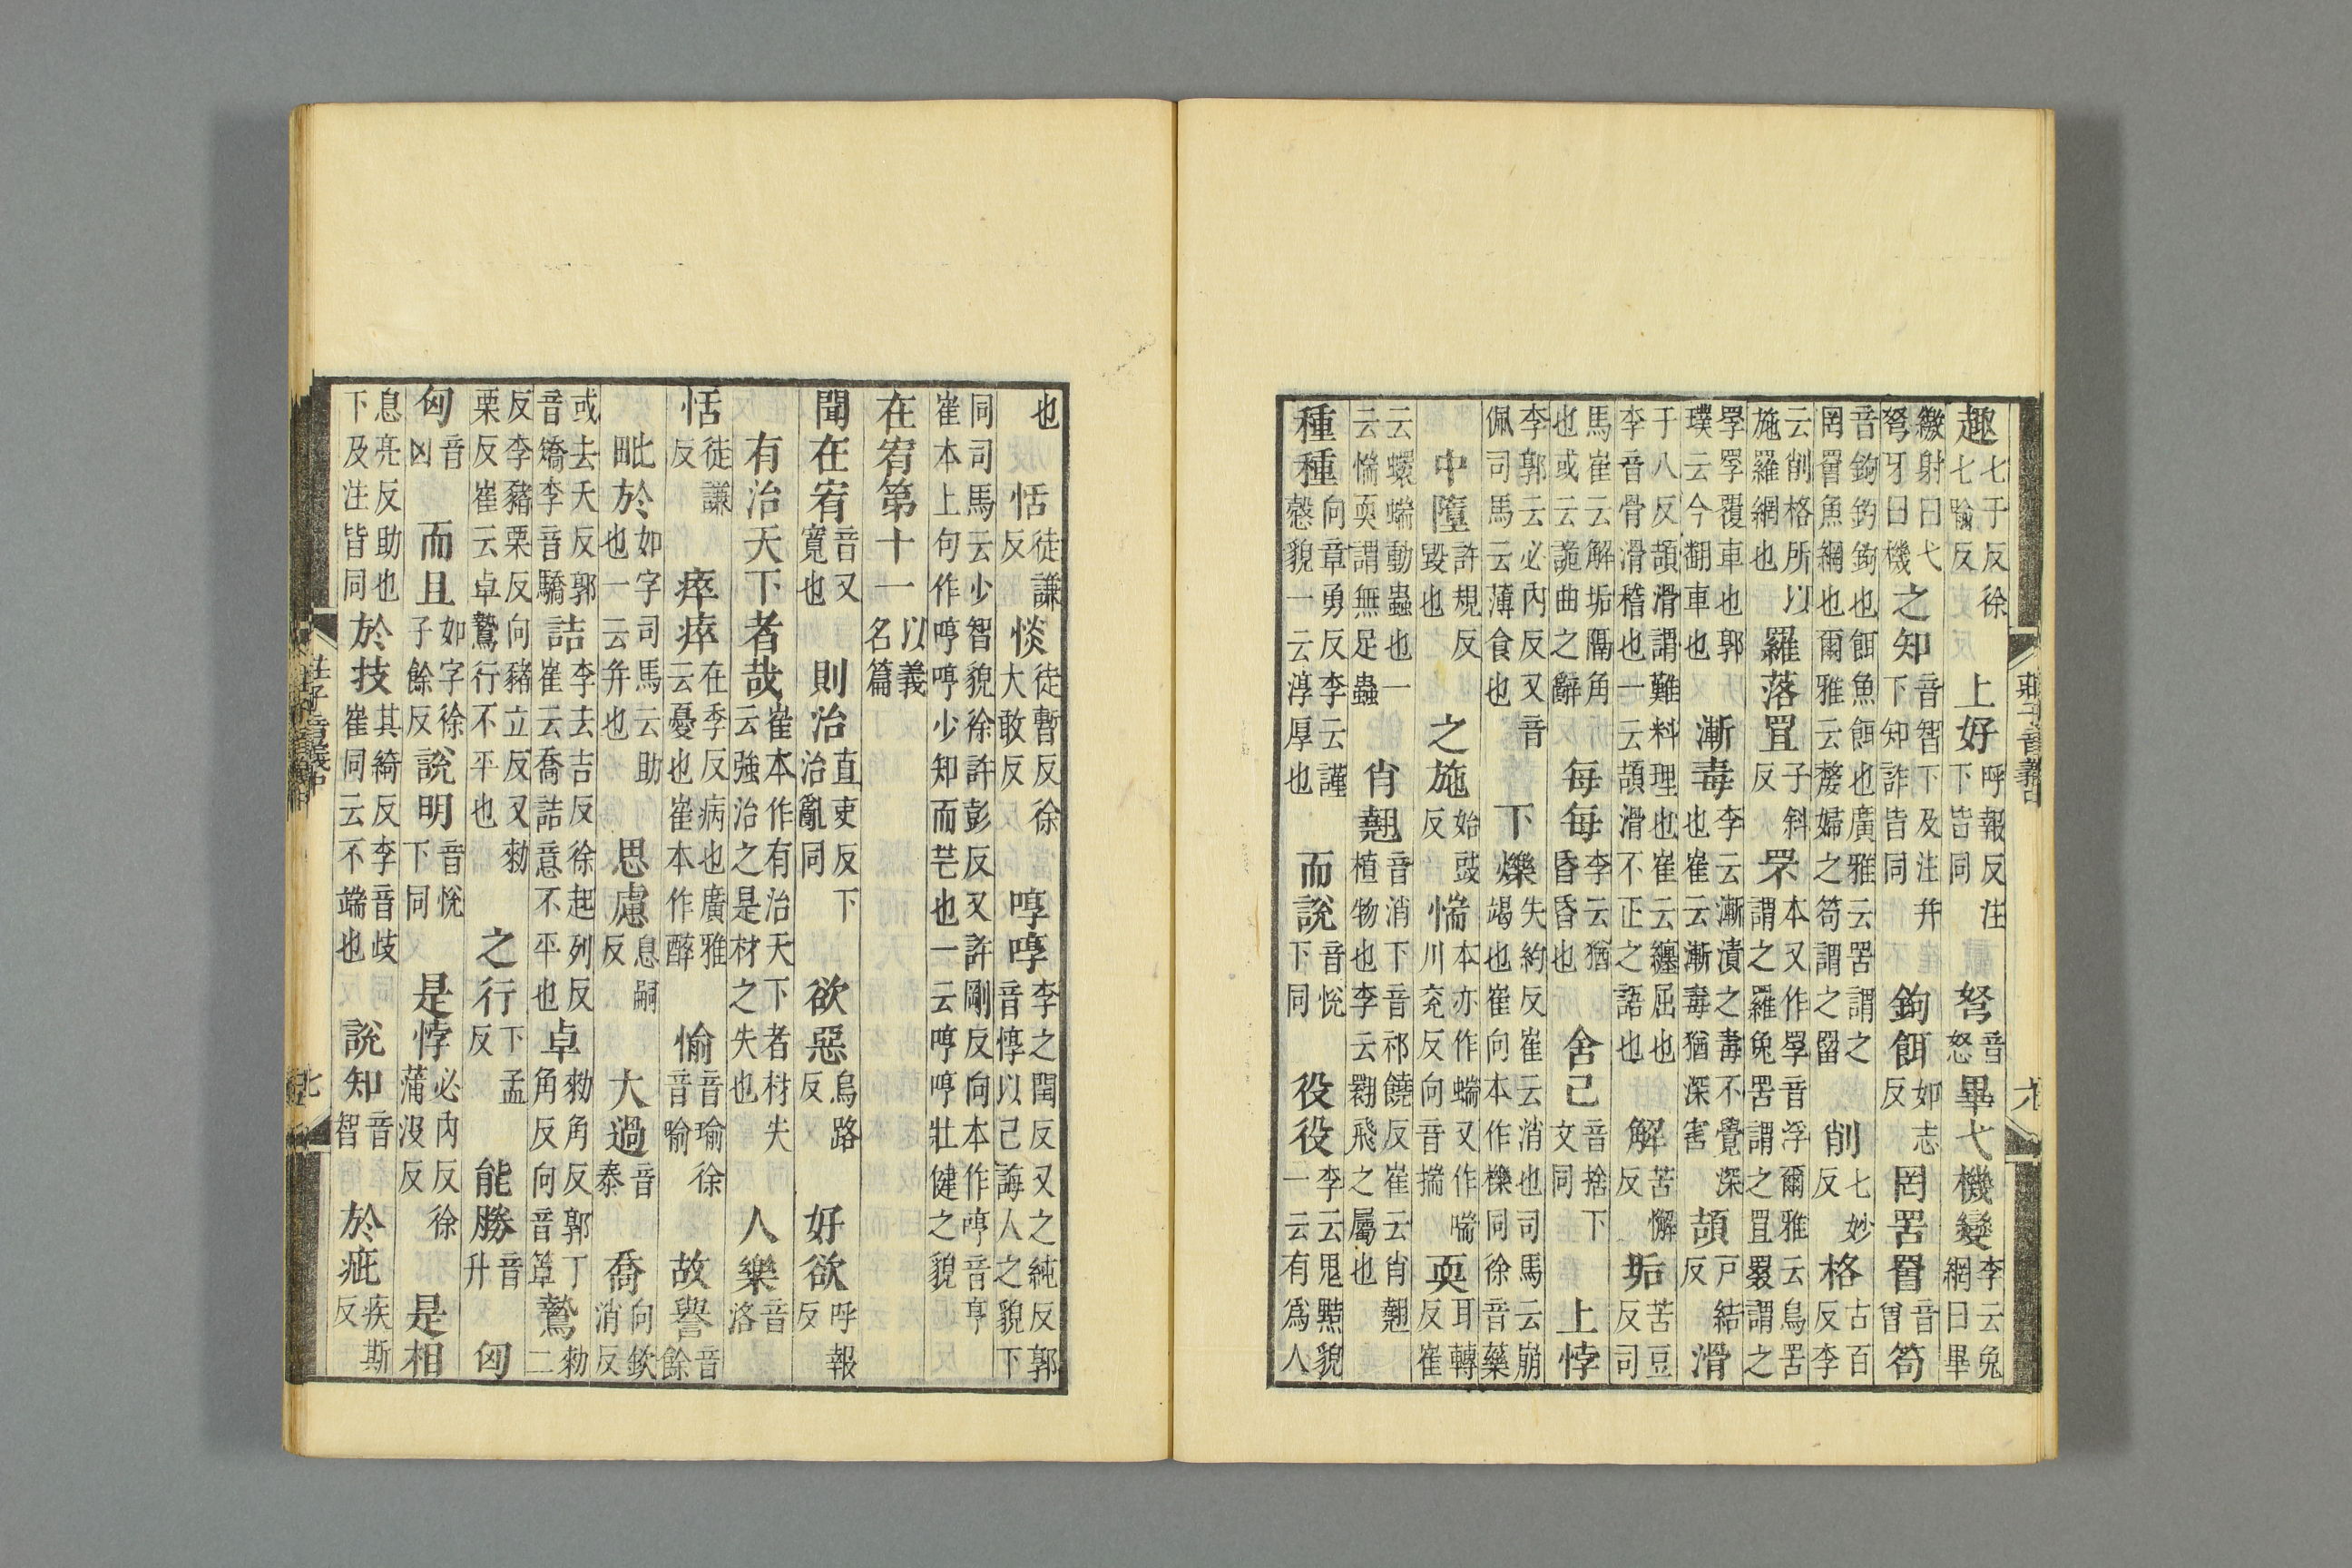 趣七于反徐七喻反 上好呼報反注下皆同 弩音怒 畢弋機變李云兔網曰畢
繳射曰弋弩牙曰機 之知音智下及注并下知詐皆同 鉤餌如志反 罔罟罾音曾 笱
音鉤鉤鉤也餌魚餌也廣雅云罟謂之罔罾魚網也爾雅云嫠婦之笱謂之罶 削七妙反 格古百反李
云削格所以施羅網也 羅落罝子斜反 罘本又作罦音浮爾雅云鳥罟謂之羅兔罟謂之罝罬謂之
罦罦覆車也郭璞云今翻車也 漸毒李云漸漬之毒不覺深也崔云漸毒猶深害 頡戶結反 滑
于八反頡滑謂難料理也崔云纏屈也李音骨滑稽也一云頡滑不正之語也 解苦懈反 垢苦豆反司
馬崔云解垢隔角也或云詭曲之辭 每每李云猶昏昏也 舍己音捨下文同 上悖
李郭云必內反又音佩司馬云薄食也 下爍失約反崔云消也司馬云崩竭也崔向本作櫟同徐音藥
中墮許規反毀也 之施始豉反 惴本亦作蝡又作喘川兗反向音揣 耎耳轉反崔
云蠉蝡動蟲也一云惴耎謂無足蟲 肖翹音消下音祁饒反崔云肖翹植物也李云翾飛之屬也
種種向章勇反李云謹慤貌一云淳厚也 而說音悅下同 役役李云鬼黠貌一云有爲人
莊子音義中 六
也 恬徒謙反 惔徒暫反徐大敢反 啍啍李之閏反又之純反郭音惇以己誨人之貌下
同司馬云少智貌徐許彭反又許剛反向本作啍音亨崔本上句作啍啍少知而芒也一云啍啍壯健之貌
在宥第十一以義名篇
聞在宥音又寬也 則治直吏反下治亂同 欲惡烏路反 好欲呼報反
有治天下者哉崔本作有治天下者材失云強治之是材之失也 人樂音洛
恬徒謙反 瘁瘁在季反病也廣雅云憂也崔本作醉 愉音瑜徐音喻 故譽音餘
毗於如字司馬云助也一云并也 思慮息嗣反 大過音泰 喬向欽消反
或去夭反郭音矯李音驕 詰李去吉反徐起列反崔云喬詰意不平也 卓勑角反郭丁角反向音簟 鷙勑二
反李豬栗反向豬立反又勑栗反崔云卓鷙行不平也 之行下孟反 能勝音升 匈
匈音凶 而且如字徐子餘反 說明音悅下同 是悖必內反徐蒲沒反 是相
息亮反助也下及注皆同 於技其綺反李音歧崔同云不端也 說知音智 於疵疾斯反
莊子音義中 七